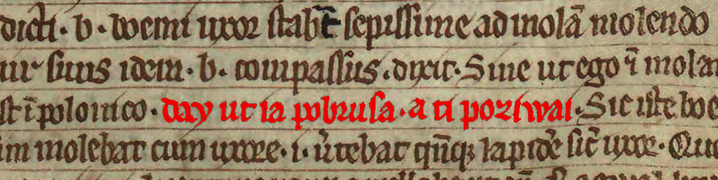 dicti · b · boemi uxor stabat sepissime ad molā molendo
suus idem · b · compassus · dixit · Sine ut ego ī mola
st ī polonico · day ut ia pobrusa · a ti poziwai · Sic iste boe
im molebat cum uxore · i · v̄tebat q̄nq; lapidē sic̄ uxor · Quo